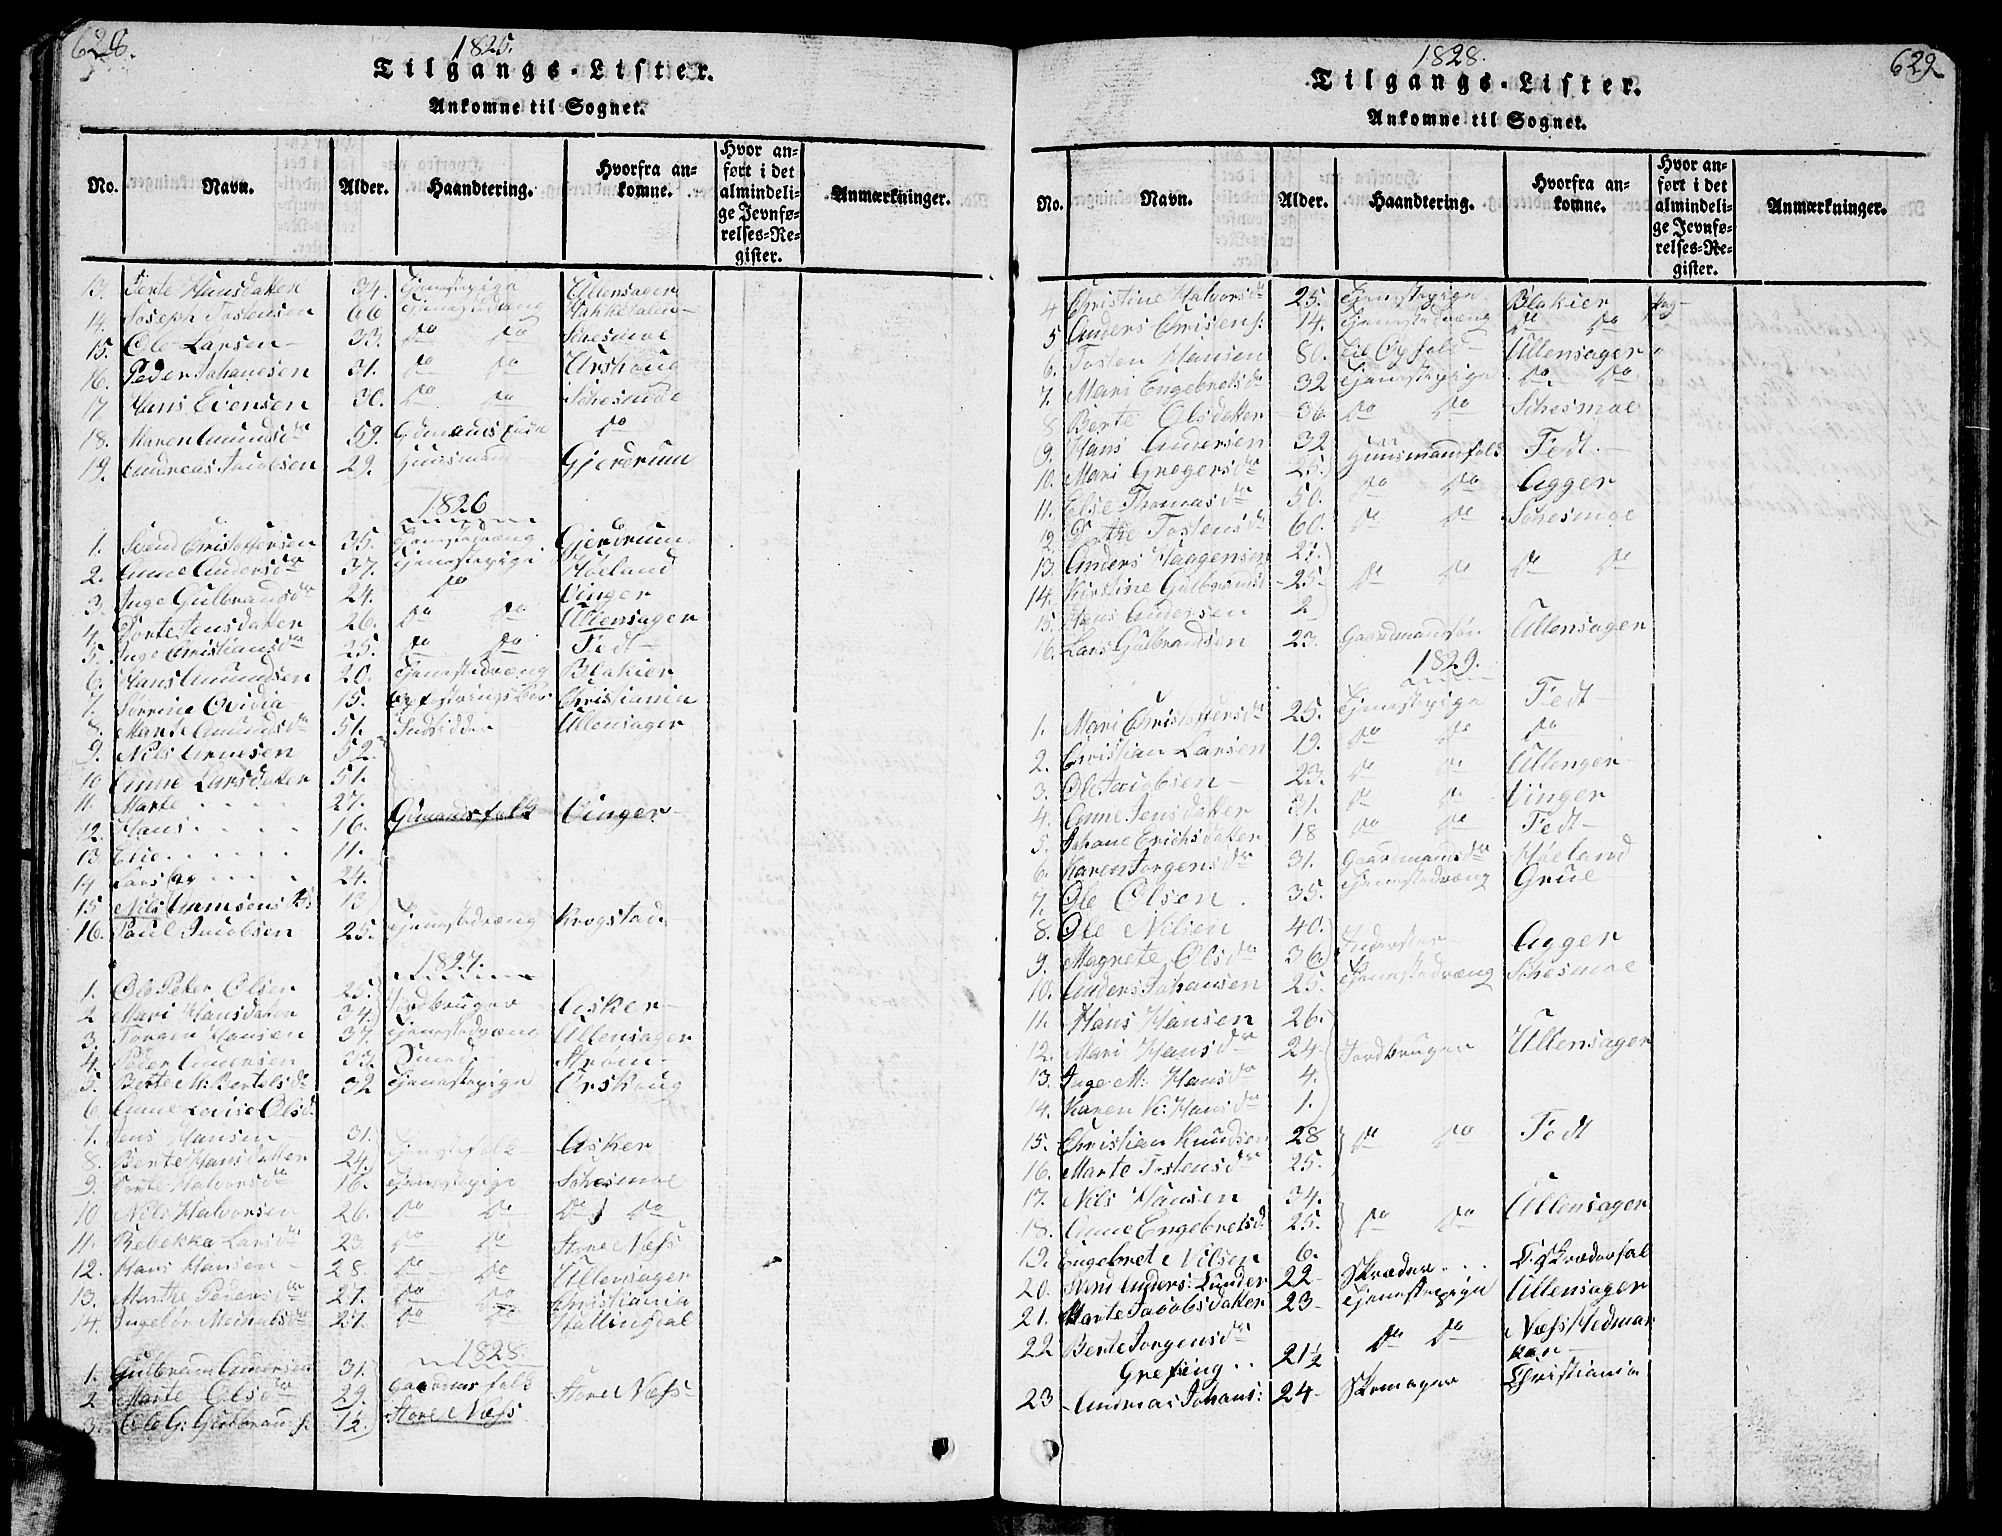 628.
1825.
Tilgangs-Lister.
Ankomne til Sognet.
No. Navn. Alder. Haandtering. Hvorfra ankomne. Hvor anført i det almindelige Jevnførelses-Register. Anmærkninger.
13. Berte Hansdatter 34. Tjenestepige Ullensager
14. Joseph Tostensen 66 Tjenestedræng Hakkedalen
15. Ole Larsen 33. do do Schesmoe
16. Peder Johanesen 31. do do Urskoug
17 Hans Evensen 30. do do Schesmoe
18. Karen Amundsdr 59. do
19. Andreas Jacobsen 29. Huusmand Gjerdrum
1826
1. Svend Christophersen 35. Tjenestedræng Gjerdrum.
2. Anne Andersdr 37. Tjenestepige Høeland
3. Inge Gulbrandsdr 24 do Vinger
4. Dorte Jensdatter 26. do do Ullensager
5. Inge Christiansdr 25. do do Fedt
6. Hans Amundsen 20. Tjenestedræng Blakier
7. Ovidia 15. Christiania
8. Marte Amundsdr 51. Ullensager
9. Nils Arnesen 52
10 Anne Larsdatter 51.
11. Marte 27.
12. Hans 16. Gmandsfolk Vinger
13 11.
14 Lars 24.
15 Nils 13
16. Paul Jacobsen 25. Tjenestedræng Krogstad
1827.
1. Ole Peter Olsen 25. Jordbruger Asker
2 Mari Hansdatter 34.
3. Hansen 37. Tjenestedræng Ullensager
4. Peder Andersen 33. Smed Strøm
5. Berte M: Bertelsdr 32 Tjenestepige Urskoug
6. Anne Lovise Olsd.
7. Jens Hansen 31.
8. Berte Hansdatter 24. Tjenestefolk Asker
9. Dorte Halvorsdr 16. Tjenestepige Schesmoe
10 Nils Halvorsen 26. do do do do
11. Rebekka Larsdr 23 do do Store Næss
12. Hans Hansen 28. do do Ullensager
13. Marthe Pedersdr 21. do do Christiania
14. Ingebor 21. do do Hallingdal
1828.
1. Gulbrand Andersen 31.
2 Marte Olsdr 29. Gaardmsfolk Store Næss
3. Ole G: Gulbrands. 1½. Store Næss
1828.
629
Tilgangs-Lister.
Ankomne til Sognet.
No. Navn. Alder. Haandtering. Hvorfra ankomne. Hvor anført i det almindelige Jevnførelses-Register. Anmærkninger.
4 Christine Halvorsdr 25. Tjenestepige Blakier
5 Anders Christens: 14. Tjenestedræng do do
6. Tosten Hansen 80. Ullensager
7. Mari Engebretsdr 32 Tjenestepige do do
8 Berte Olsdatter 36. do do Schesmoe
9. Hans Andersen 32 Huusmandfolk Fedt.
10. Mari Gregersdr 25.
11. Else Thomasdr 50. do do Agger
12. Berthe Tostensdr 60. do do Schesmoe
13. Anders Haagensen 21.
14. Kirstine Gulbrandsd 25. do do do do
15. Hans Andersen 2
16. Lars Gulbrandsen 23. Gaardmandsøn Ullensager
1829.
1. Mari Christophersdr 25. Tjenestepige Fedt
2. Christian Larsen 19. do do do
3. Ole Jacobsen 23. do do
4. Anne Jensdatter 31. do do Vinger
5. Johane Erichsdatter 18 do do Fedt
6. Karen Jørgensdr 31. Gaardmandsdr Høeland
7. Ole Olsen 35. Tjenestedræng Grue
8. Ole Nilsen 40. Agger
9. Magrete Olsdr 36. Inderster
10. Anders Johansen 25. Tjenestedræng Schesmoe
11. Hans Hansen 26.
12. Mari Hansdr 24. Jordbruger Ullensager
13. Inge M: Hansdr 4.
14. Karen K: Hansdr 1.
15. Christian Knudsen 28 do do Fedt
16. Marte Tostensdr 25.
17. Nils Hansen 34. Ullensager
18. Anne Engebretsd. 25. do do
19. Engebret Nilsen 6.
20. Anders: Lunder 22 Skræder
21. Marte Jacobsdatter 23 Tjenestepige Ullensager
22 Berte Jørgensdr do do Næss Hedmarken
Grefsing 21½
23 Andreas Johans: 24 Skomager Christiania